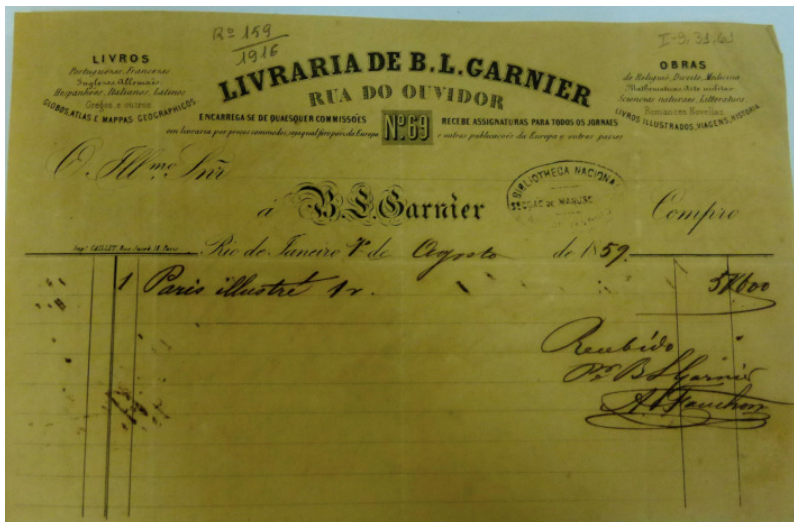 Rº 159
1916
I-9,31,61
LIVROS
Portuguezes, Francezes
Inglezes, Allemães
Hespanhóes, Italianos, Latinos
Gregos e outros
GLOBOS, ATLAS E MAPPAS GEOGRAPHICOS
LIVRARIA DE B.L.GARNIER
RUA DO OUVIDOR
Nº 69
ENCARREGA-SE DE QUAESQUER COMMISSÕES
RECEBE ASSIGNATURAS PARA TODOS OS JORNAES
e outras publicacoës da Europa e outros paizes
OBRAS
de Religião, Direito, Medicina
Mathematicas, Arte militar
Sciencias naturaes, Litteratura
Romances Novellas
LIVROS ILLUSTRADOS, VIAGENS, HISTORIA
O Illmo Snr
á B.L.Garnier Compro
BIBLIOTHECA NACIONAL
Impie CAILLET, Rue Jacob 18 Paris
Rio de Janeiro 1º de Agosto de 1859
1 Paris illustré 1v. 5#600
Recebido
Pr B L Garnier